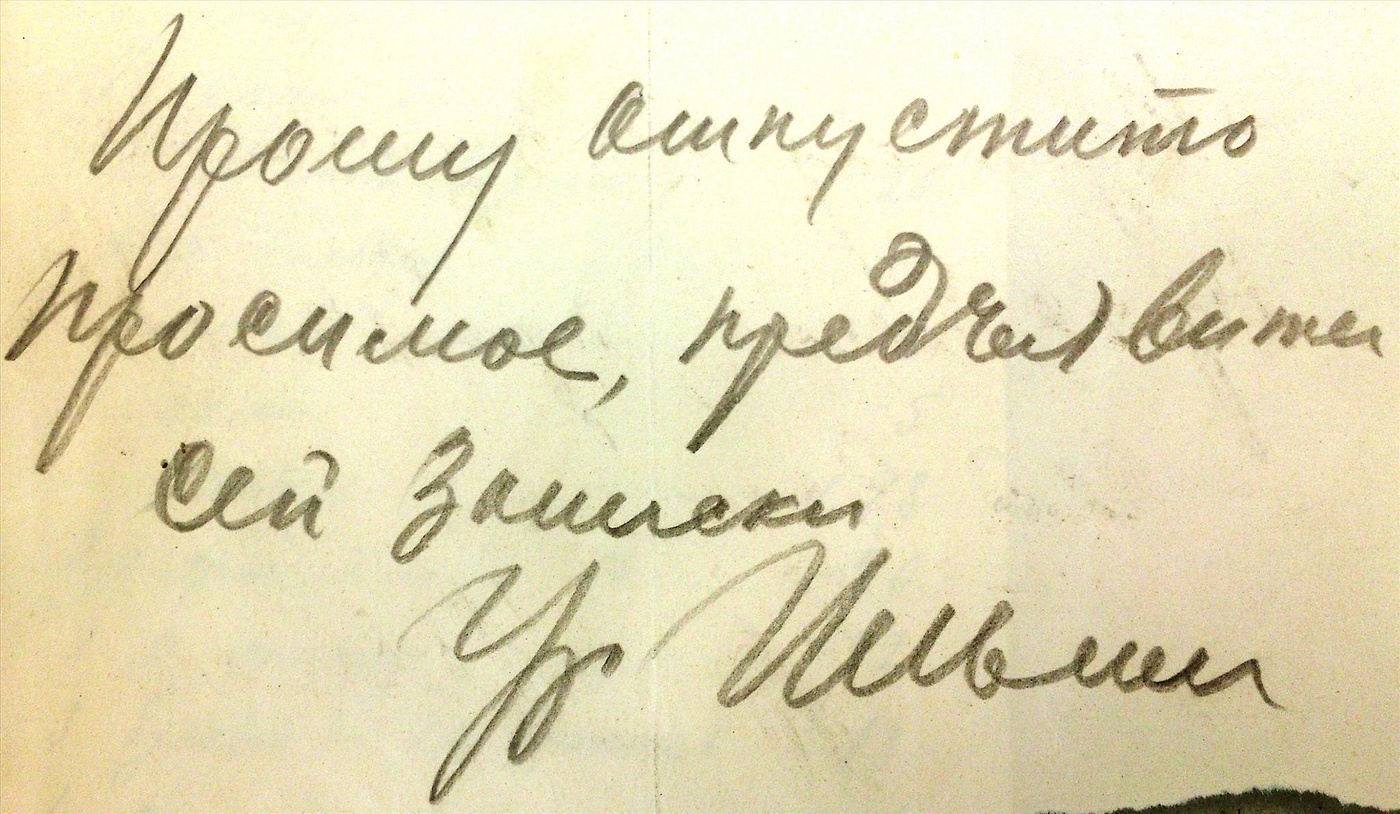 Прошу отпустить
просимое, предъявители
сей записки
Ур Ильин